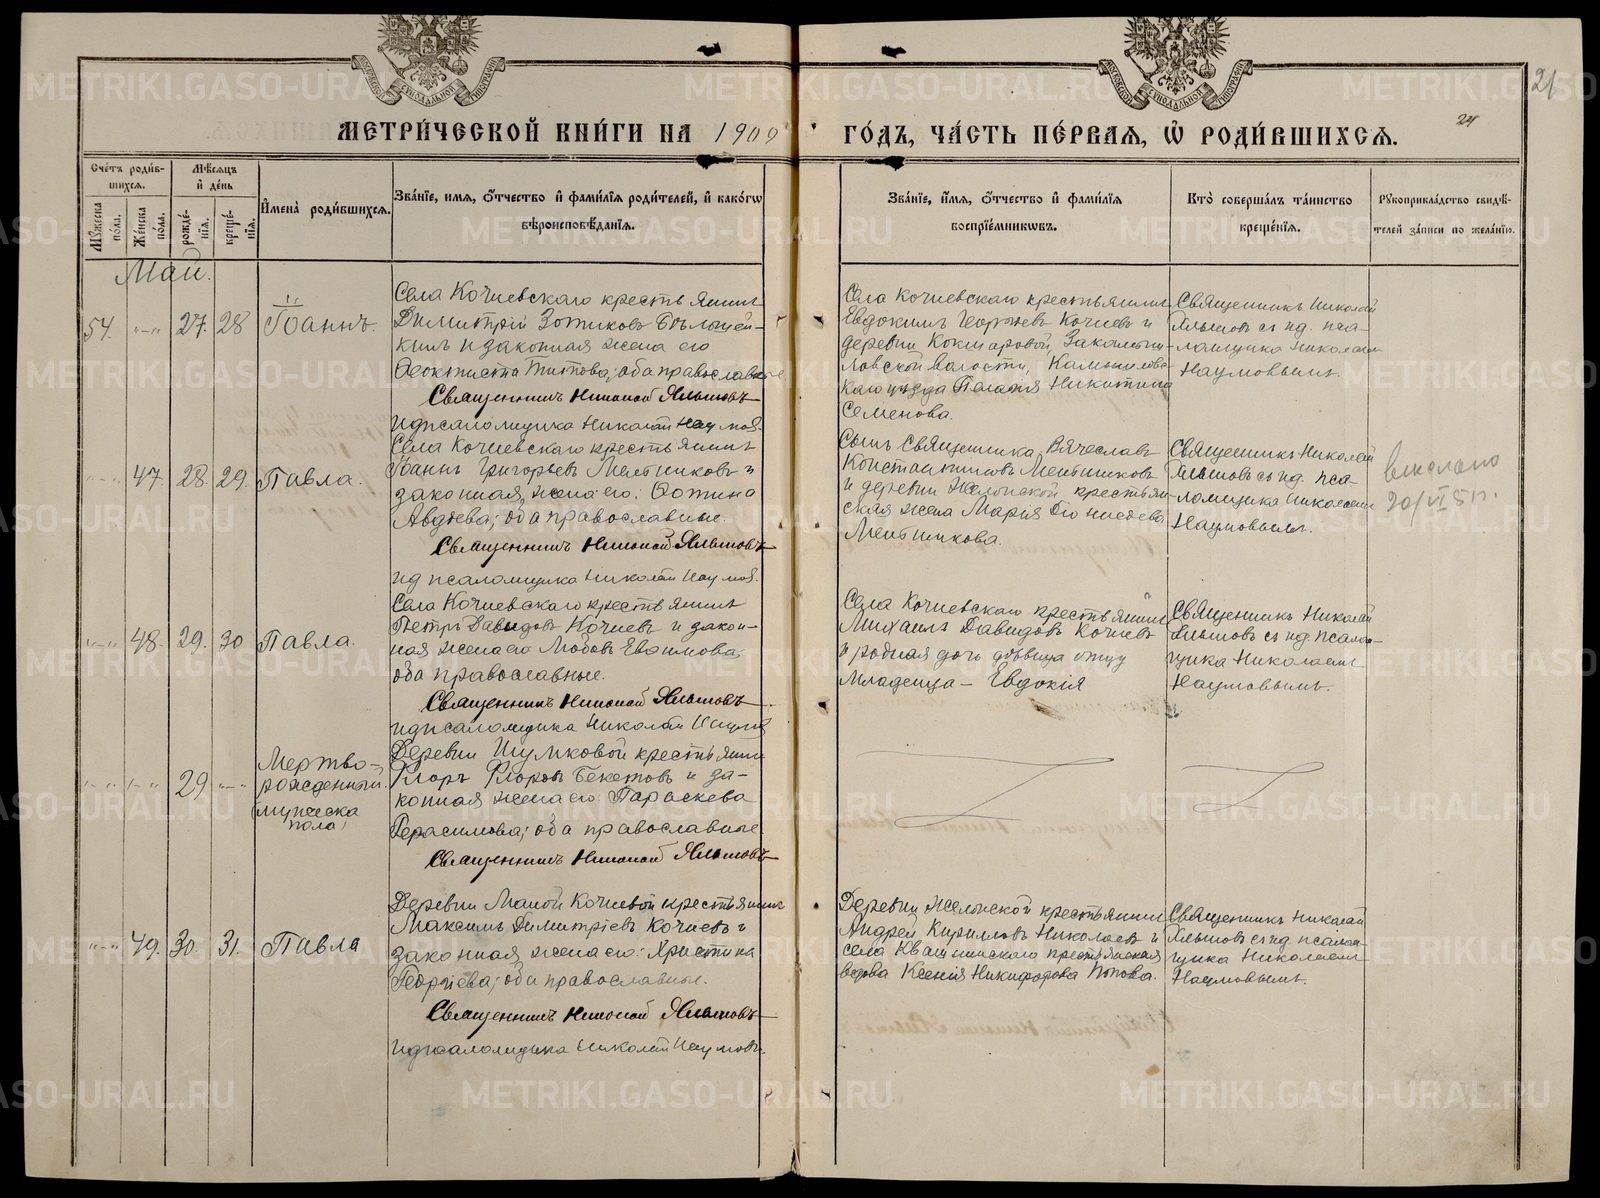 МЕТРИ́ЧЕСКОЙ КНИ́ГИ НА 1909
ГО́ДЪ, ЧА́СТЬ ПЕ́РВАЯ, Ѽ РОДИ́ВШИХСЯ.
21
21
Сче́тъ роди́в-
шихся.
Мѣ́сяцъ
и҆ де́нь
Му́жеска
по́ла.
Же́нска
по́ла.
рожде́-
нїя.
креще́-
нїя.
И҆мена̀ роди́вшихся.
Зва́нїе, имя, о҆́тчество и҆ фами́лїя роди́телей, и҆ како́гѡ
вѣроисповѣ́данїя.
Зва́нїе, и҆́мя, о҆́тчество и҆ фами́лїя
воспрїе́мникѡвъ.
Кто̀ соверша́лъ та́инство
креще́нїя.
Рꙋкоприкла́дство свидѣ́-
телей за́писи по жела́нїю.
Май.
54. "—" 27. 28 Іоаннъ.
Села Кочневскаго крестьянинъ
Димитрій Зотиковъ
и законная жена его
Титова; оба православные
Священникъ Николай Яльшовъ
ид псаломщика Николай Наумов.
Села Кочневскаго крестьянинъ
Евдокимъ Георгіевъ Кочневъ и
деревни Кокшаровой,
ловской волости, Камышловс-
каго уѣзда Пелагія Никитина
Семенова.
Священникъ Николай
Яльшовъ съ ид. пса-
ломщика Николаемъ
Наумовымъ.
"—" 47. 28. 29. Павла.
Села Кочневскаго крестьянинъ
Іоаннъ Григорьевъ Мельниковъ и
законная жена его: Фотина
Авдѣева; оба православные.
Священникъ Николай Яльшовъ
ид псаломщика Николай Наумов.
Сынъ Священника Вячеславъ
Константиновъ Мельниковъ
и деревни Желонской крестьян-
ская жена Марія
Мельникова.
Священникъ Николай
Яльшовъ съ ид. пса-
ломщика Николаемъ
Наумовымъ.
выслано
20/VI 51 г.
"—" 48. 29. 30 Павла.
Села Кочневскаго крестьянинъ
Петръ Давидовъ Кочневъ и закон-
ная жена его Любовь Евфимова;
оба православные.
Священникъ Николай Яльшовъ
ид псаломщика Николай Наумов
Села Кочневскаго крестьянинъ
Михаилъ Давидовъ Кочневъ
и родная дочь дѣвица отцу
младенца — Евдокія
Священникъ Николай
Яльшовъ съ ид. псалом-
щика Николаемъ
Наумовымъ.
"—" "—" 29. "—" Мертво-
рожденный
(мужеска
пола)
Деревни Шумковой крестьянинъ
Флоръ Флоровъ Бекетовъ и за-
конная жена его: Параскева
Герасимова; оба православные
Священникъ Николай Яльшовъ
"—" 49. 30. 31. Павла
Деревни Малой Кочневой крестьянинъ
Максимъ Димитріевъ Кочневъ и
законная жена его: Христина
Георгіева; оба православные.
Священникъ Николай Яльшовъ
ид псаломщика Николай Наумовъ.
Деревни Желонской крестьянинъ
Андрей Кирилловъ Николаевъ и
села Квашнинскаго крестьянская
вдова Ксенія Никифорова Попова.
Священникъ Николай
Яльшовъ съ ид псалом-
щика Николаемъ
Наумовымъ.
METRIKI.GASO-URAL.RU